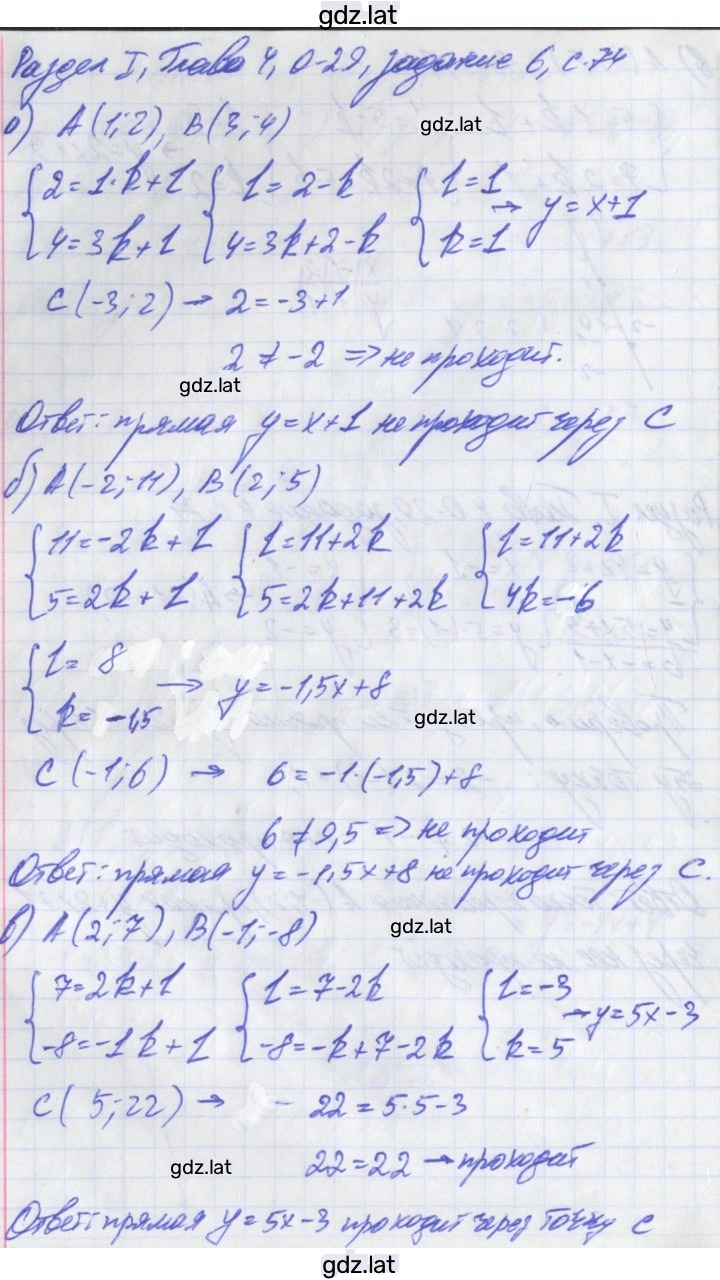 gdz.lat
Раздел I, Глава 4, О-29, задание 6, с.74
а) А(1;2), В(3;4)
gdz.lat
{2=1·k+l {l=2-k {l=1
{4=3k+l {4=3k+2-k {k=1 → y=x+1
С(-3;2) → 2=-3+1
2≠-2 ⇒ не проходит.
gdz.lat
Ответ: прямая y=x+1 не проходит через С
б) А(-2;11), В(2;5)
{11=-2k+l {l=11+2k {l=11+2k
{5=2k+l {5=2k+11+2k {4k=-6
{l=8
{k=-1,5 → y=-1,5x+8
gdz.lat
С(-1;6) → 6=-1·(-1,5)+8
6≠9,5 ⇒ не проходит
Ответ: прямая y=-1,5x+8 не проходит через С.
в) А(2;7), В(-1;-8)
gdz.lat
{7=2k+l {l=7-2k {l=-3
{-8=-1k+l {-8=-k+7-2k {k=5 → y=5x-3
С(5;22) → 22=5·5-3
22=22 → проходит
gdz.lat
Ответ: прямая y=5x-3 проходит через точку С
gdz.lat